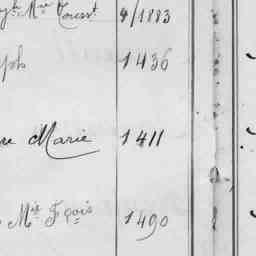 Mie Toust 4/1883
ph 1436
Marie 1411
Mie Fçois 1490